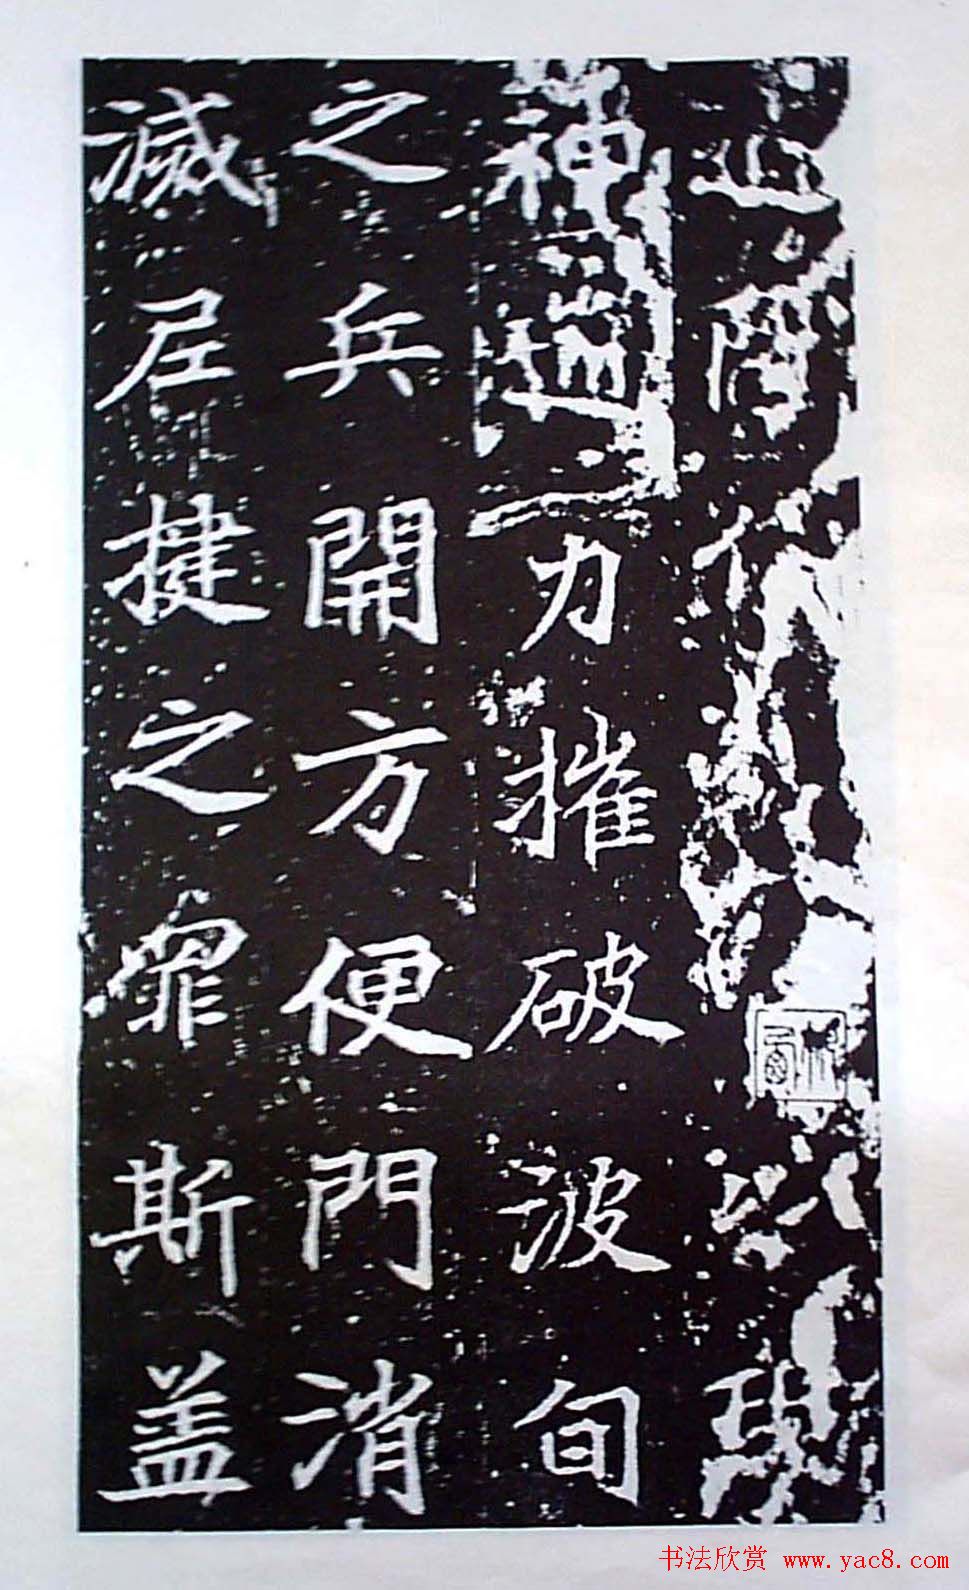 以現
神力摧破波旬
之兵開方便門消
滅尼揵之罪斯盖
书法欣赏 www.yac8.com